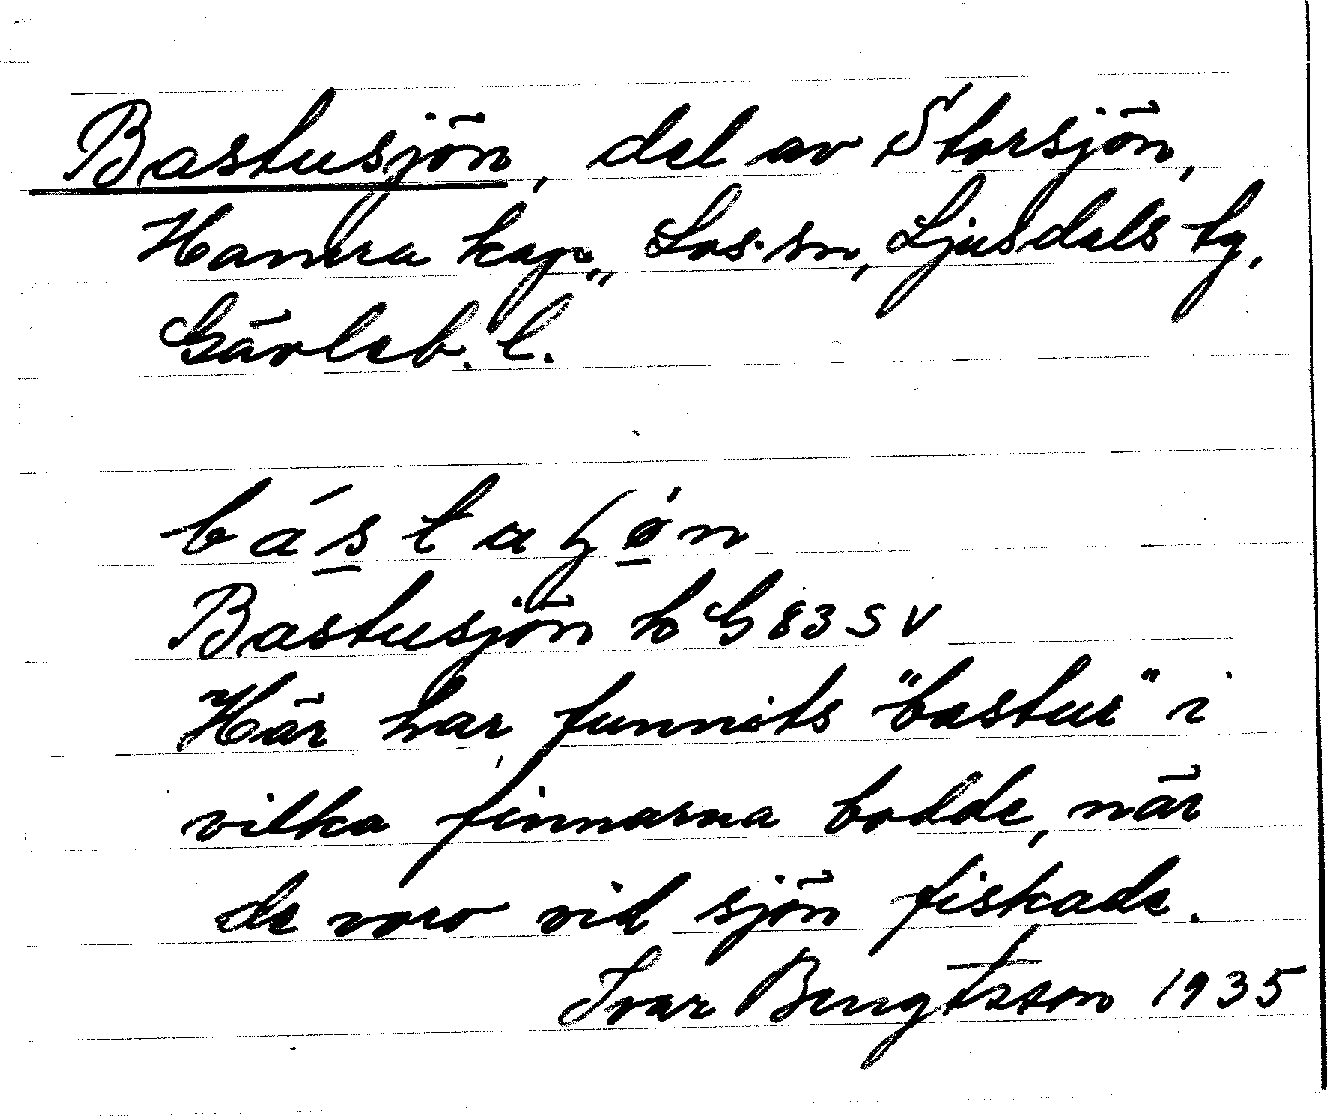 Bastusjön, del av Storsjön,
Hamra kap., Los sn, Ljusdals tg,
Gävleb. l.
Bastusjön h G 83 SV
Här har funnits "bastur" i
vilka finnarna bodde, när
de voro vid sjön fiskade.
Ivar Bengtsson 1935